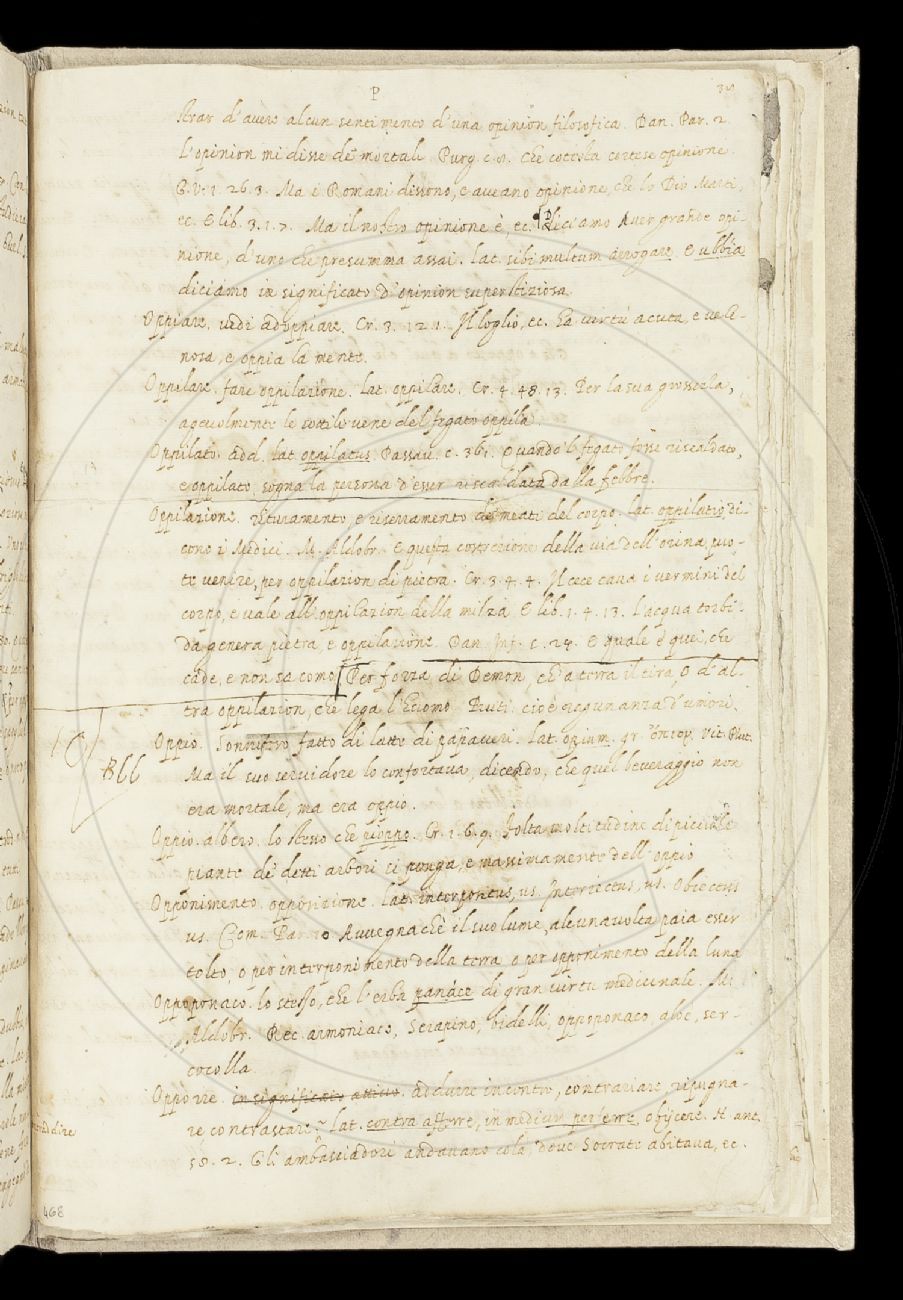 P
strar d'avere alcun sentimento d'una opinion filosofica. Dan. Par. 2
L'opinion mi disse de mortali. Purg. c. 8. Che cotesta cortese opinione.
G. V. 1. 26. 3. Ma i Romani dissono, e aveano opinione, che lo Dio Marti,
ec. E lib. 3. 1. 7. Ma il nostro opinione è, ec. Diciamo Aver grande opi-
nione, d'uno che presumma assai. lat. sibi multum arrogare. E ubbia
diciamo in significato d'opinion superstiziosa.
Oppiare. vedi adoppiare. Cr. 3. 12. 1. Il loglio, ec. ha virtù acuta, e vele-
nosa, e oppia la mente.
Oppilare. fare oppilazione. Lat. oppilare. Cr. 4. 48. 13. Per la sua grossezza,
agevolmente le sottili vene del fegato oppila.
Oppilato. add. lat. oppilatus. Passav. c. 361. Quando 'l fegato fosse riscaldato,
e oppilato, sogna la persona d'esser riscaldata dalla febbre.
Oppilazione. rituramento, e riserramento de' meati del corpo. lat. oppilatio di-
cono i Medici. M. Aldobr. E questa correzione della via dell'orina, puo-
te venire, per oppilazion di pietra. Cr. 3. 4. 4. Il cece cava i vermini del
corpo, e vale all'oppilazion della milza. E lib. 1. 4. 13. L'acqua torbi-
da genera pietra, e oppilazione. Dan. Inf. c. 24. E quale è quei, che
cade, e non sa como, Per forza di Demon, ch'a terra il tira, O d'al-
tra oppilazion, che lega l'huomo. Buti. cioè ragunanza d'umori.
Oppio. Sonnifero fatto di latte di papaveri. Lat. opium. gr. ὄπιον. Vit. Plut.
Bll
Ma il suo servidore lo confortava, dicendo, che quel beveraggio non
era mortale, ma era oppio.
Oppio. albero. lo stesso che pioppo. Cr. 1. 6. 9. Folta moltitudine di picciole
piante di detti arbori si ponga, e massimamente dell'oppio
Opponimento. opposizione. lat. interpositus, us. Interiectus, us. Obiectus
us. Com. Par. 10 Avvegnachè il suo lume, alcuna volta paia esser
tolto, o per interponimento della terra, o per opponimento della luna
Oppoponaco. lo stesso, che l'erba panace di gran virtù medicinale. M.
Aldobr. Rec. armoniaco, Serapino, bidelli, oppoponaco, aloe, ser-
cocolla.
Opporre. in significato attivo. addurre incontro, contrariare, ripugna-
re, contrastare. lat. contra afferre, in medium perferre, objicere. N. ant.
58. 2. Gli ambasciadori andavano colà, dove Socrate abitava, ec.
468